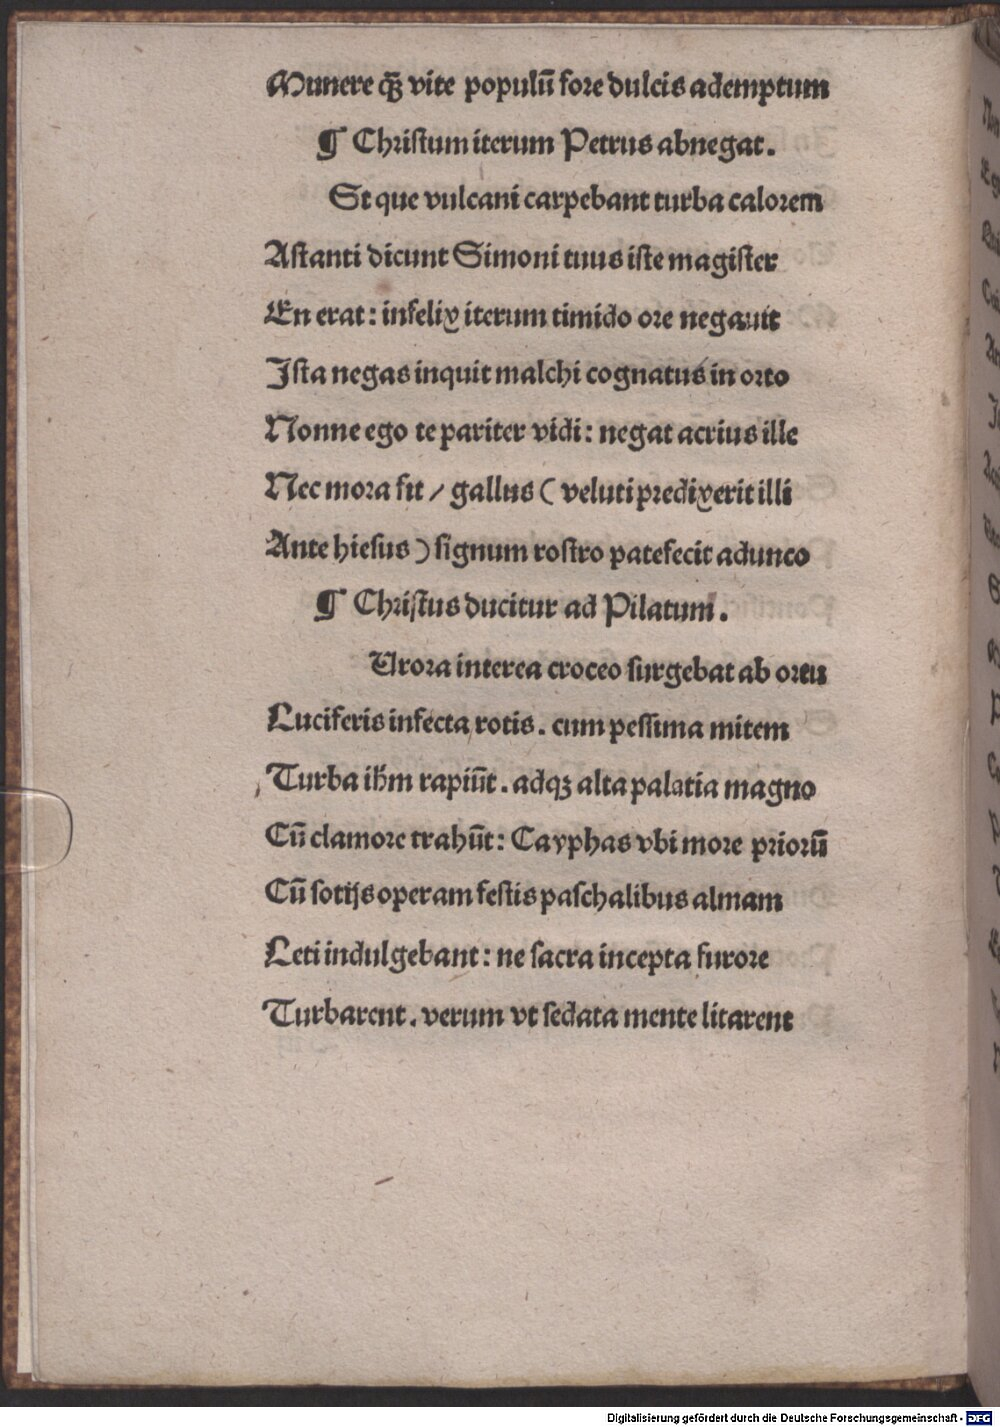 Munere qꝫ̄ vite populū fore dulcis ademptum
¶ Chriſtum iterum Petrus abnegat.
St que vulcani carpebant turba calorem
Aſtanti dicunt Simoni tuus iſte magiſter
En erat: infelix iterum timido ore negauit
Iſta negas inquit malchi cognatus in orto
Nonne ego te pariter vidi: negat acrius ille
Nec mora fit / gallus (veluti predixerit illi
Ante hieſus) ſignum roſtro patefecit adunco
¶ Chriſtus ducitur ad Pilatum.
Urora interea croceo ſurgebat ab ortu
Luciferis infecta rotis. cum peſſima mitem
Turba ihm̄ rapiūt. adqꝫ alta palatia magno
Cū clamore trahūt: Cayphas vbi more priorū
Cū ſotijs operam feſtis paſchalibus almam
Leti indulgebant: ne ſacra incepta furore
Turbarent. verum vt ſedata mente litarent
Digitalisierung gefördert durch die Deutsche Forschungsgemeinschaft - DFG